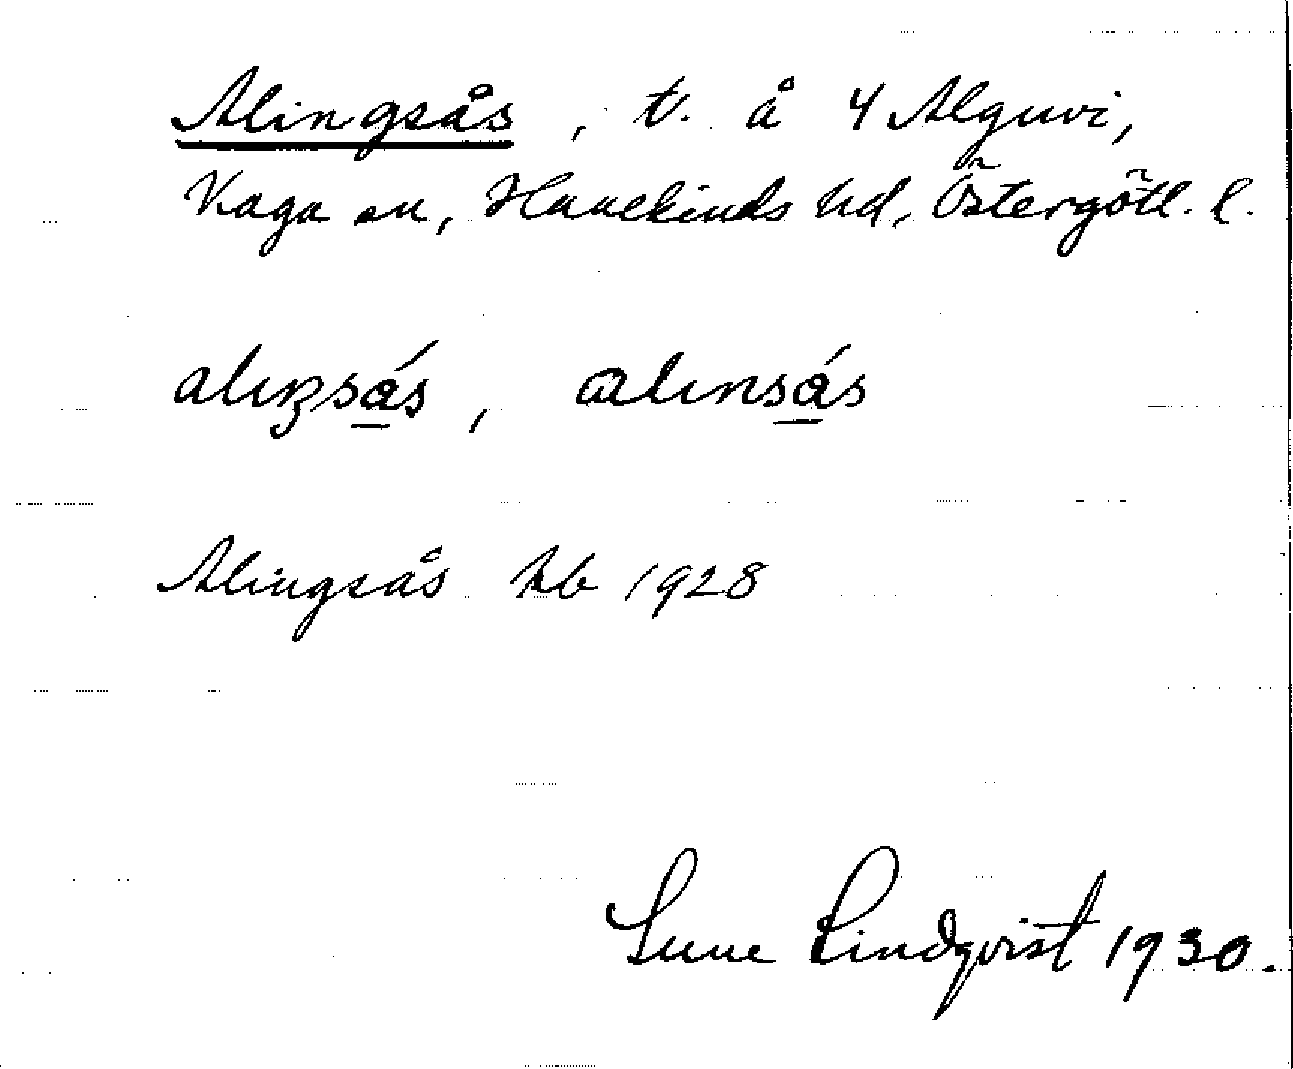 Alingsås, t. å 4 Alguvi,
Kaga sn, Hanekinds hd, Östergötl. l.
alıŋsás, alınsás
Alingsås hb 1928
Sune Lindqvist 1930.